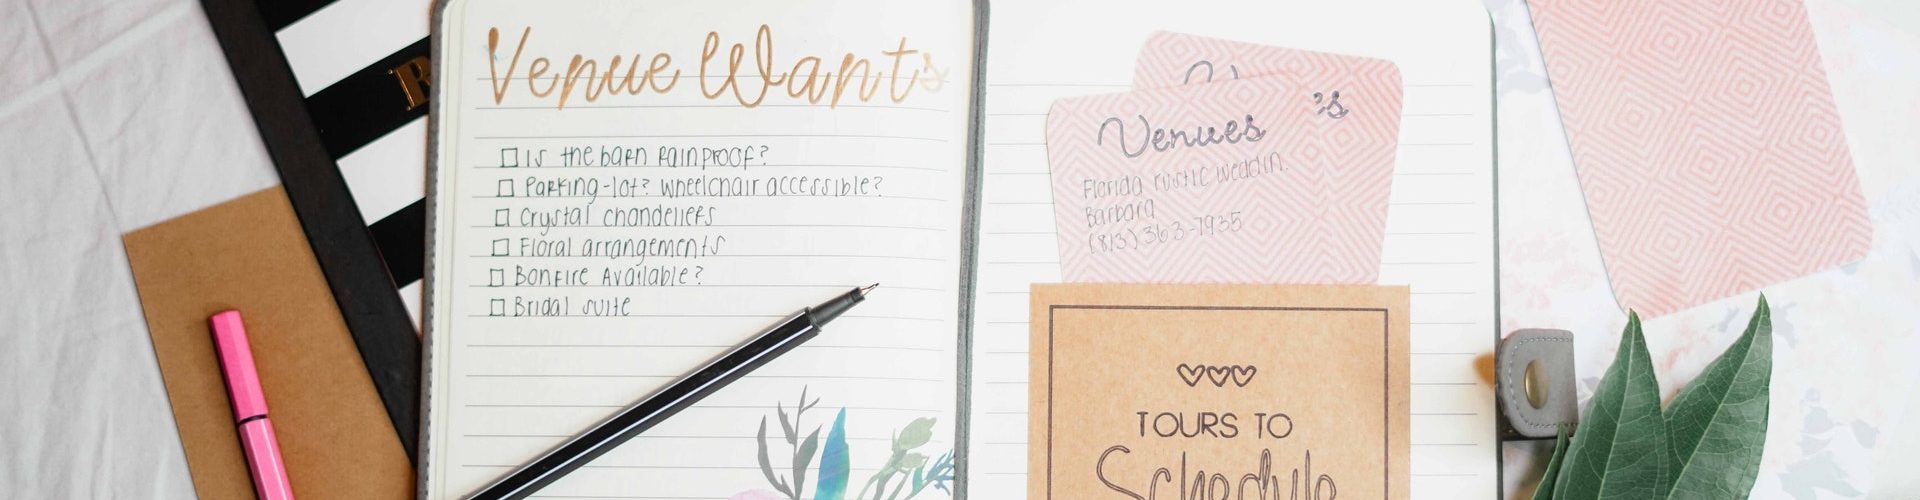 Venue Wants
Is the barn rainproof?
Parking-lot? wheelchair accessible?
Crystal chandeliers
Floral arrangements
Bonfire Available?
Bridal suite
Venues
's
Florida rustic weddin.
Barbara
(813) 363-7935
TOURS TO
Schedule